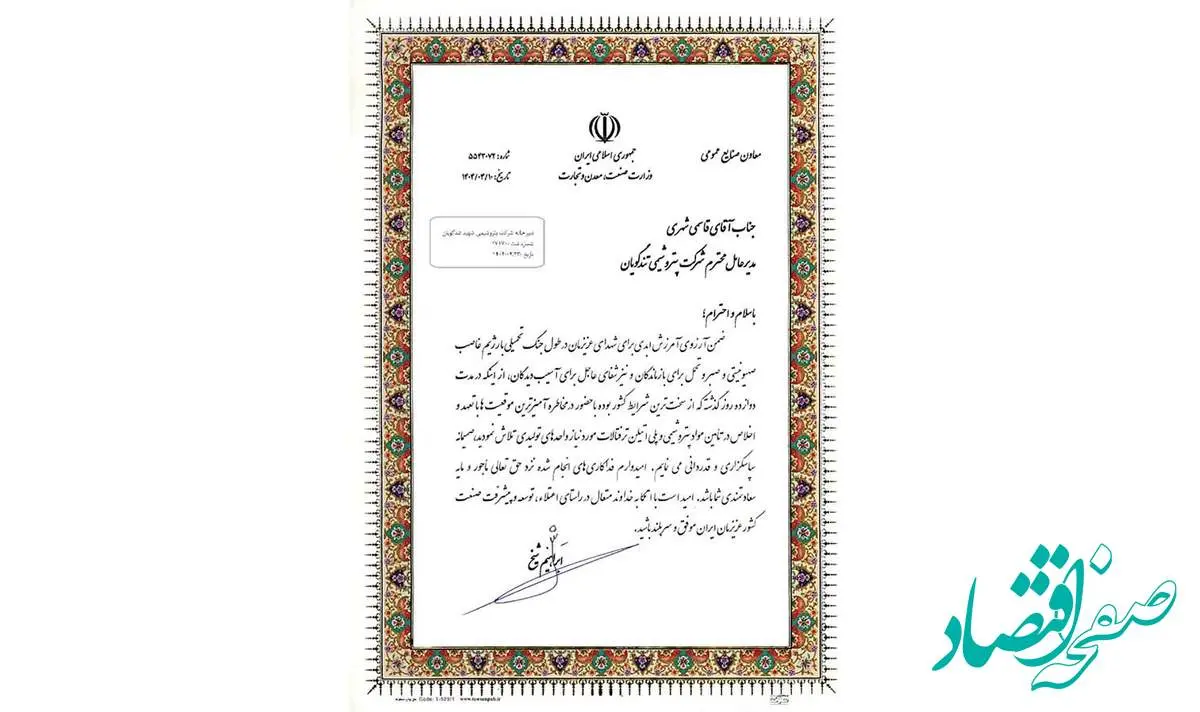 معاون صنایع عمومی
جمهوری اسلامی ایران
وزارت صنعت، معدن و تجارت
شماره: ۵۵۴۳۰۷۲
تاریخ: ۱۴۰۴/۰۴/۱۰
دبیرخانه شرکت پتروشیمی شهید تندگویان
شماره ثبت:
تاریخ:
جناب آقای قاسمی شهری
مدیرعامل محترم شرکت پتروشیمی تندگویان
باسلام و احترام؛
ضمن آرزوی آمرزش ابدی برای شهدای عزیزمان در طول جنگ تحمیلی با رژیم غاصب
صهیونیتی و صبر و تحمل برای بازماندگان و نیز شفای عاجل برای آسیب دیدگان، از اینکه در مدت
دوازده روز گذشته که از سخت‌ترین شرایط کشور بوده با حضور در مخاطره آمیزترین موقعیت ها با تعهد و
اخلاص در تأمین مواد پتروشیمی و پلی اتیلن ترفتالات مورد نیاز واحدهای تولیدی تلاش نمودید، صمیمانه
سپاسگزاری و قدردانی می نمایم. امیدوارم فداکاری‌های انجام شده نزد حق تعالی مأجور و مایه
سعادتمندی شما باشد. امید است با اتکا به خداوند متعال در راستای اعتلاء، توسعه و پیشرفت صنعت
کشور عزیزمان ایران موفق و سربلند باشید.
ابراهیم شیخ
صفحه اقتصاد